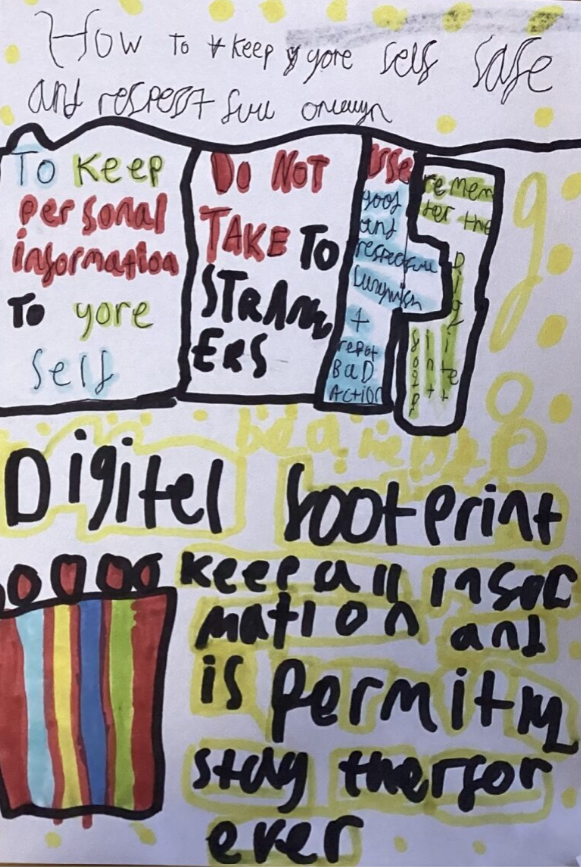 How to keep yore self safe
and respest full onlwyn
To Keep
personal
information
To yore
self
Do NOT
TAKE TO
STRANG
ERS
usse
good
and
respectfull
+
repot
BaD
ACTION
remem
ter the
Digitel footprint
Digitel footprint
keep all infor
mation and
is permitly
stay ther for
ever